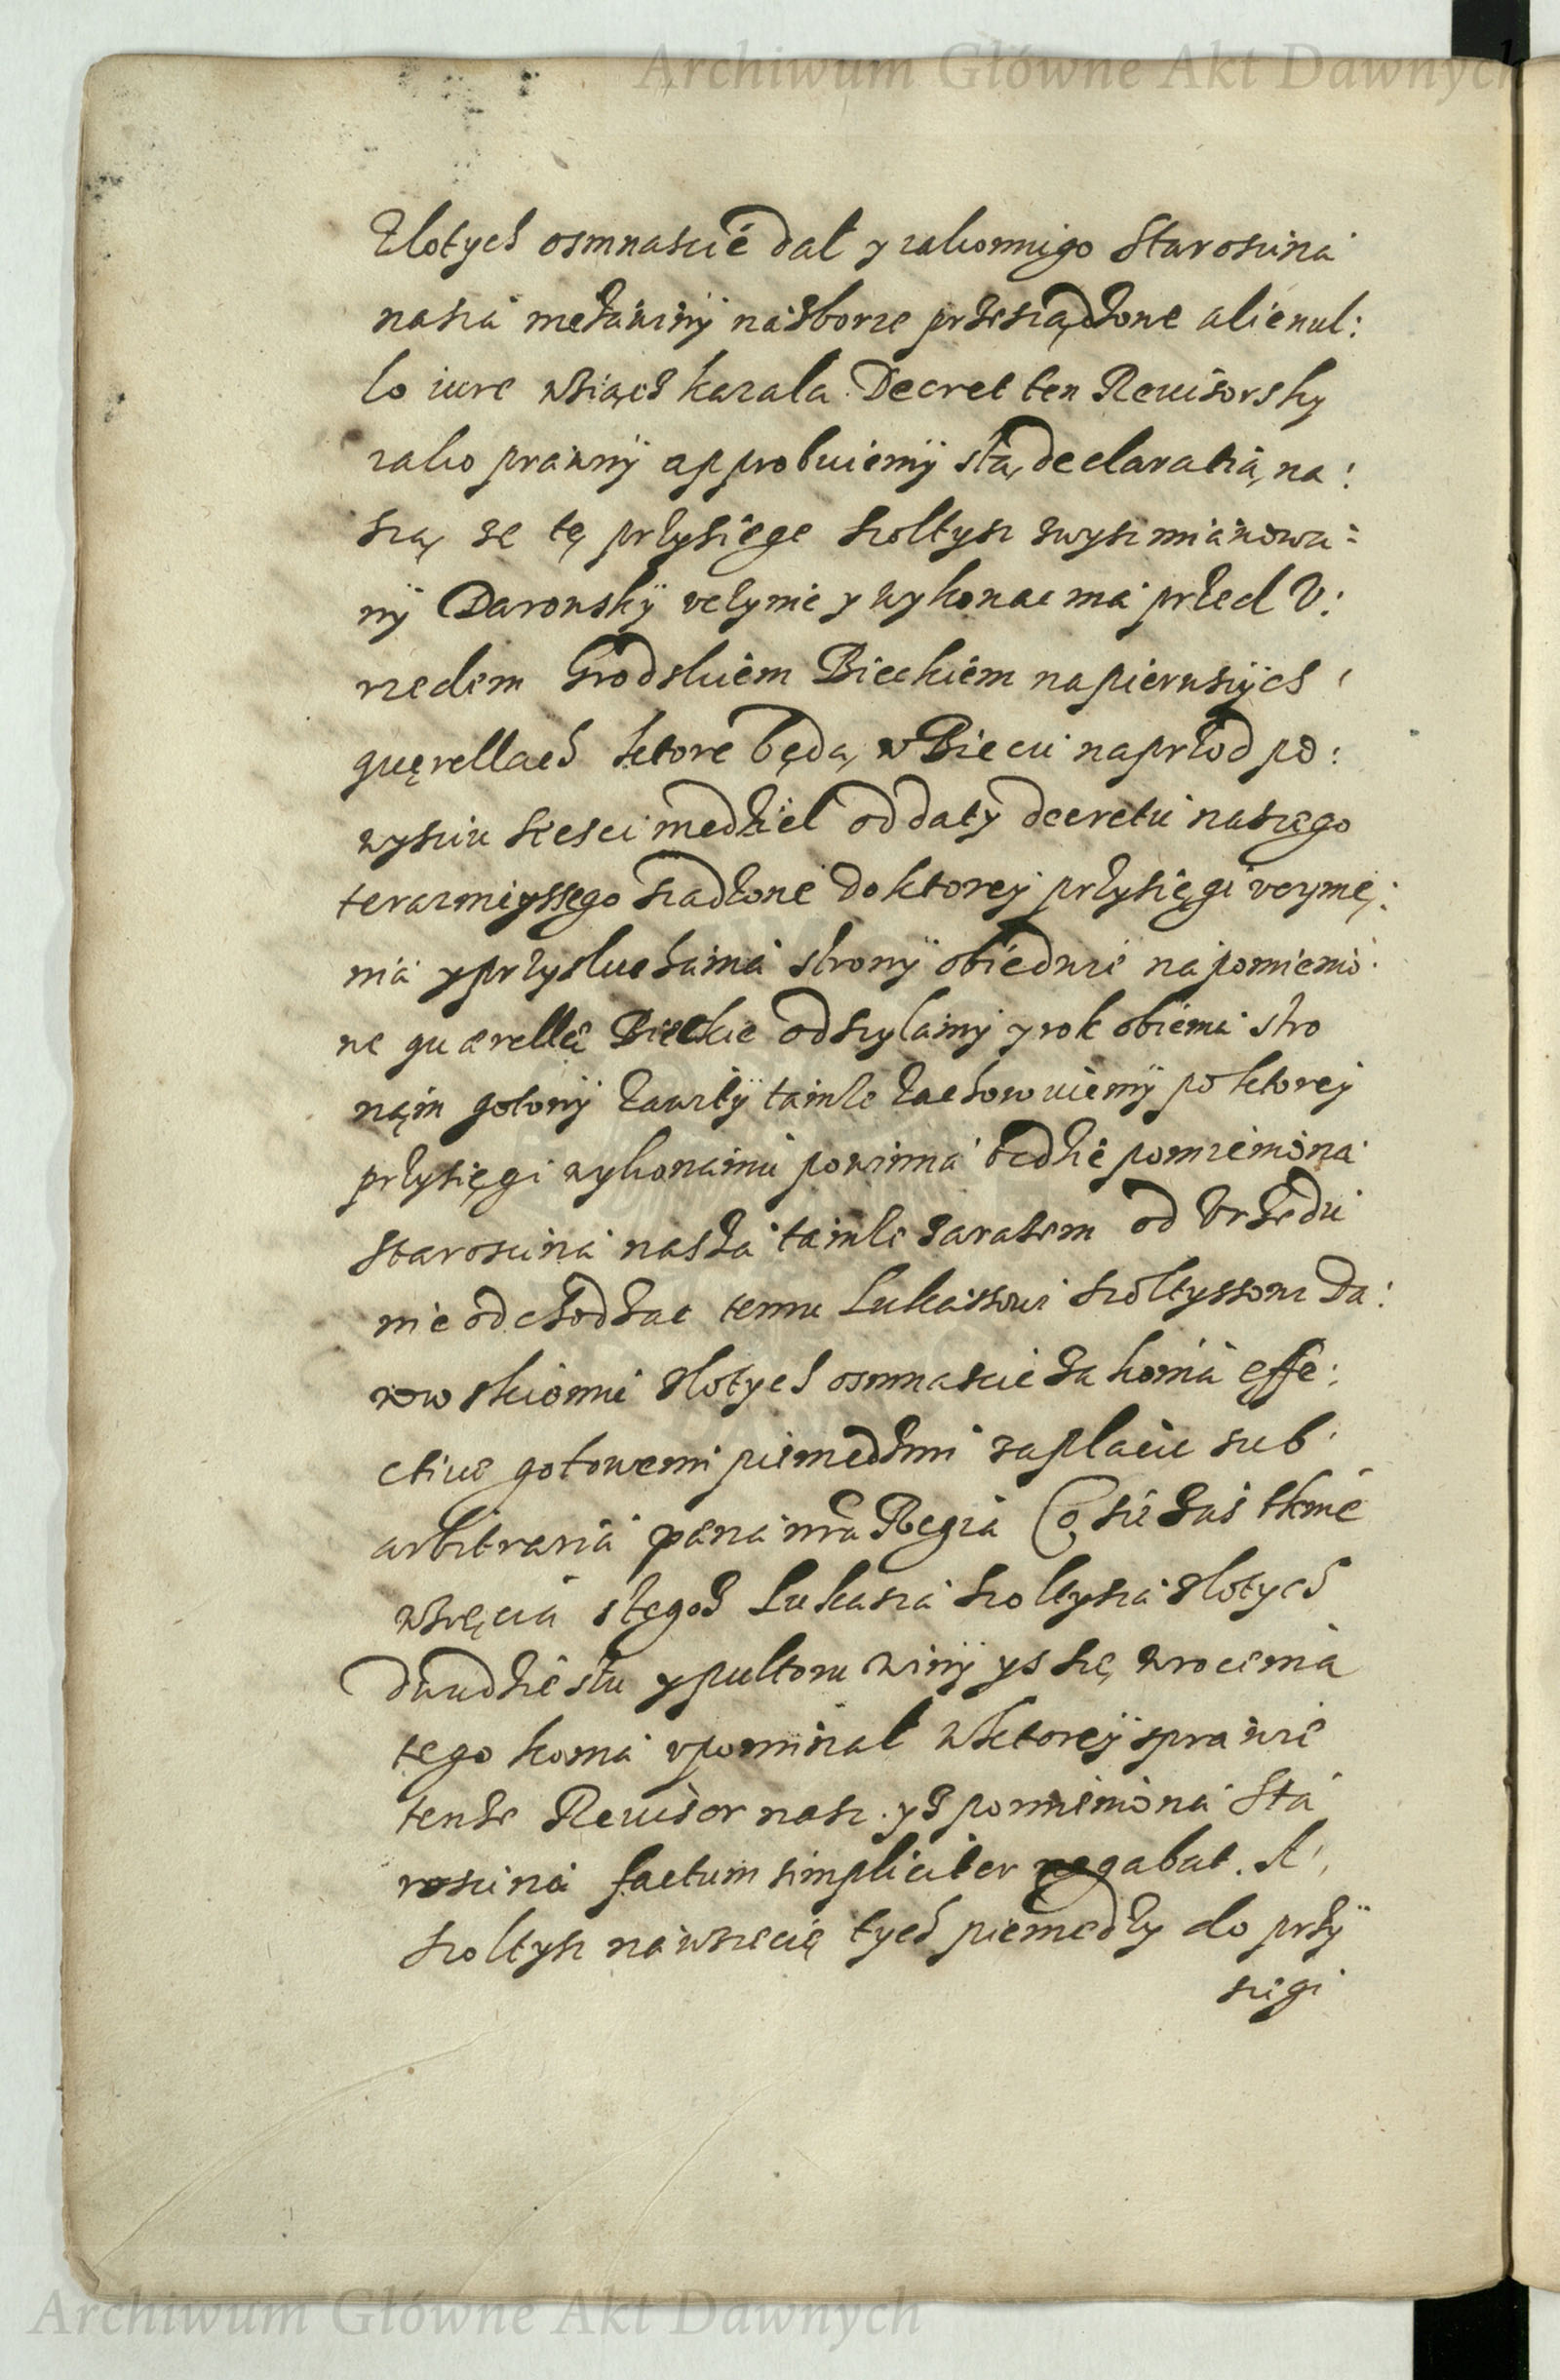 Archiwum Główne Akt Dawnych
Złotych osmnascie dał y zakonnigo Starosciná
naszá nietáwiny ná zborze przesiądzone alie nul:
lo iure wziąch kazala. Decret ten Reuisorsky
iako prawny approbuiemy stą declaratią na:
szą ze tę przysiege szoltysz zwysz mianowa:
ny Darowsky vczynic y wykonac má przed V:
rzedem Grodskiem Bieckiem na pierwszych
quęrellach ktore będą w Bieczu naprzod po:
wysciu szesci niedziel od daty decretu naszego
teraznieyssego sządzone do ktorey przysięgi vczynie:
nia y przysluchania strony obiedwie na pomienio
ne quaerelle Bieckie odszylamy y rok obiema stro
nąm gotowy zawity tamze zachowuiemy po ktorey
przysięgi wykonaniu powinna bedzie pomieniona
starosciná nasza tamze zarazem od Vrzedu
nie odchodzac temu Lukaszowi szoltyssowi Da:
rowskiemu zlotych osmnascie za konia effe:
ctiue gotowemi pieniedzmi zaplacic sub
arbitraria paena nra Regia Co sie zas tknie
wzięcia stegoz Lukasza szoltysza zlotych
dwudziestu y pultoru winy ysz się wrocenia
tego konia vpominal wktorey sprawie
tenze Reuisor nasz. yz pomieniona Sta
roscina factum simpliciter negabat. A
szoltysz na wziecie tych pieniedzy do przy
sięgi
Archiwum Główne Akt Dawnych